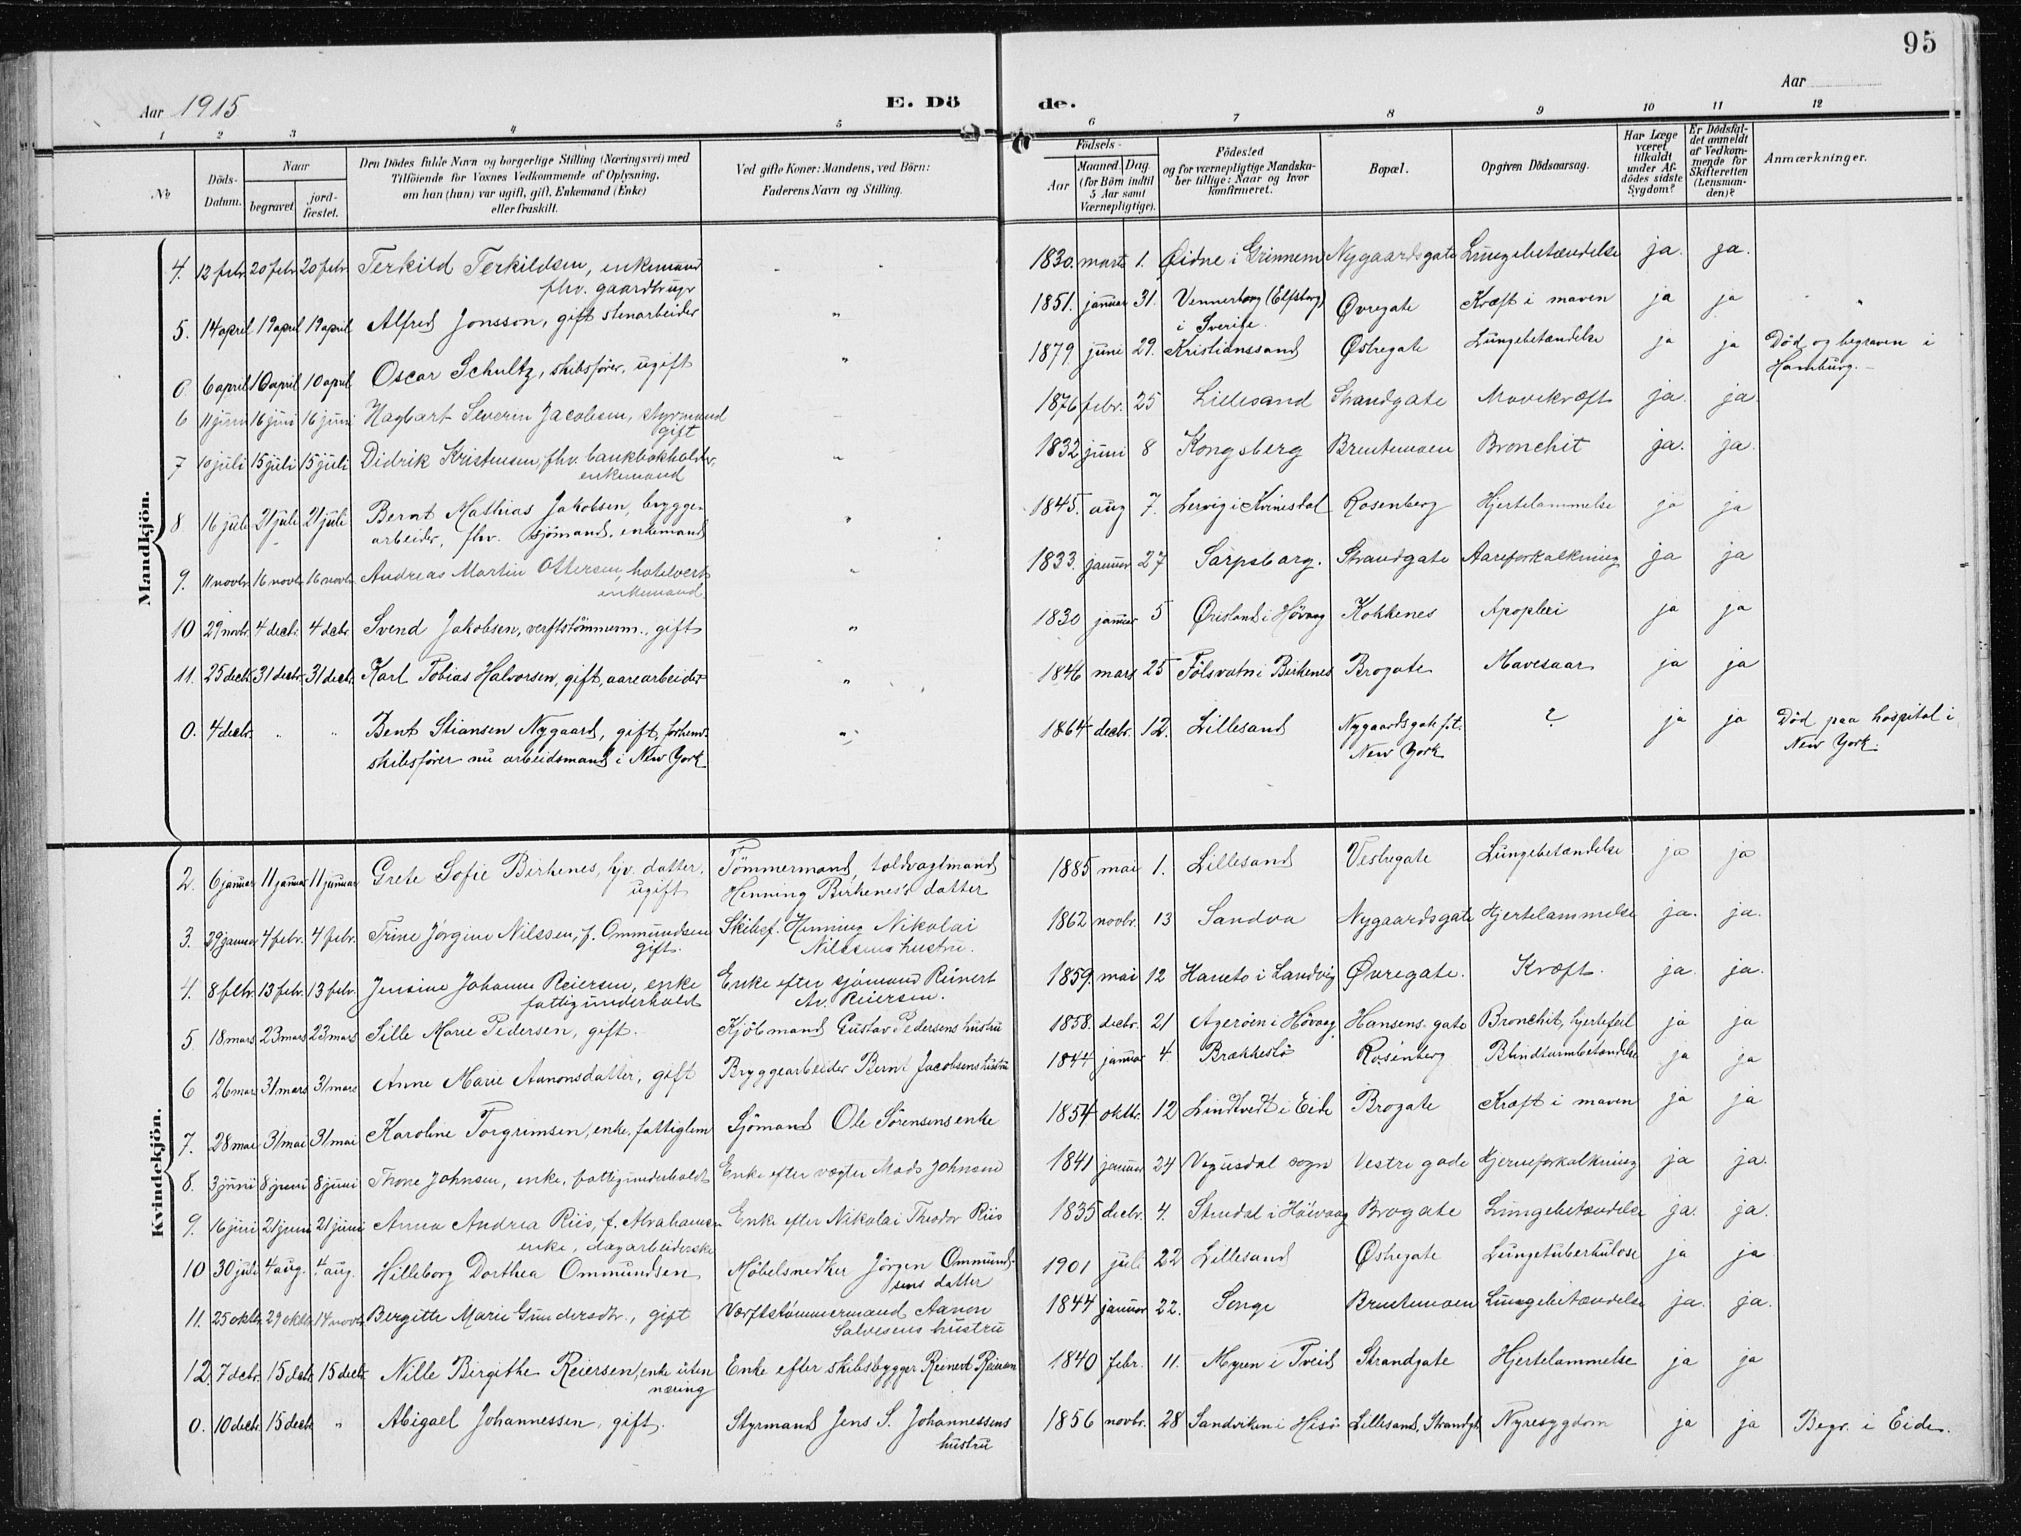 95
Aar 1915
E. Dö
de.
Aar
1 2 3 4 5 6 7 8 9 10 11 12
No
Döds-
Datum.
Naar
begravet
jord-
fæstet.
Den Dödes fulde Navn og borgerlige Stilling (Næringsvei) med
Tilföiende for Voxnes Vedkommende af Oplysning,
om han (hun) var ugift, gift, Enkemand (Enke)
eller fraskilt.
Ved gifte Koner: Mandens, ved Börn:
Faderens Navn og Stilling.
Födsels-
Aar
Maaned Dag
(for Börn indtil
5 Aar samt
Værnepligtige).
Födested
og for værnepligtige Mandska-
ber tillige: Naar og hvor
konfirmeret.
Bopæl.
Opgiven Dödsaarsag.
Har Læge
været
tilkaldt
under Af-
dödes sidste
Sygdom?
Er Dödsfal-
det anmeldt
af Vedkom-
mende for
Skifteretten
(Lensman-
den)?
Anmærkninger.
Mandkjön.
4. 12 febr. 20 febr. 20 febr. Terkild Terkildsen, enkemand " 1830. marts 1. Øidne i Grinnem Nygaardsgate Lungebetændelse ja. ja.
fhv. gaardbrugr
5. 14 april 19 april 19 april Alfred Jonsson, gift stenarbeider " 1851. januar 31. Vennerborg (Elfsborg) Øvregate Kræft i maven ja ja "
i Sverige.
0 6 april 10 april 10 april Oscar Schultz, skibsfører, ugift " 1879 juni 29. Kristianssand Østregate Lungebetændelse ja ja Død og begraven i
Hamburg.
6 11 juni 16 juni 16 juni Hagbart Severin Jacobsen, styrmand 1876 febr. 25 Lillesand Strandgate Mavekræft ja. ja.
gift
7 10 juli 15 juli 15 juli Didrik Kristensen, fhv. bankbokholder, " 1832 juni 8 Kongsberg Brentemoen Bronchit ja. ja.
enkemand
8 16 juli 21 juli 21 juli Bernt Mathias Jakobsen, brygge- " 1845. aug 7. Lervig i Kvinesdal Rosenberg Hjertelammelse ja ja
arbeider, fhv. sjømand, enkemand
9. 11 novbr 16 novbr 16 novbr. Andreas Martin Ottersen, hotelvert " 1833. januar 27 Sarpsborg. Strandgate Aareforkalkning ja ja
enkemand.
10 29 novbr. 4 decbr. 4 dcbr. Svend Jakobsen, verftstømmerm., gift " 1830 januar 5 Øresland i Høvaag Kokkenes Apoplexi ja ja
11. 25 decbr. 31 decbr. 31 decbr. Karl Tobias Halvorsen, gift, aarearbeider " 1846 mars 25 Tølsvatn i Birkenes Brogate Mavesaar ja ja
0. 4 decbr. " " Bent Stiansen Nygaard, gift, forhenv. " 1864 decbr. 12. Lillesand Nygaardsgate f.t. ? ja ja Død paa hospital i
skibsfører nu arbeidsmand i New York New York New York.
Kvindekjön.
2. 6 januar 11 januar 11 januar Grete Sofie Birkenes, hjv. datter, Tømmermand, toldvagtmand 1885 mai 1. Lillesand Vestregate Lungebetændelse ja ja
ugift Henning Birkenes's datter
3. 29 januar 4 febr. 4 febr. Trine Jørgine Nilssen, f. Ommundsen Skibsf. Henning Nikolai 1862 novbr. 13 Sandva Nygaardsgate Hjertelammelse ja. ja.
gift. Nilssens hustru.
4. 8 febr. 13 febr. 13 febr. Jensine Johanne Reiersen, enke Enke efter sjømand Reinert 1859. mai 12 Haneto i Landvig Øvregate. Kræft. ja. ja.
fattigunderholdt Av. Reiersen.
5 18 mars 23 mars 23 mars Sille Marie Pedersen, gift. Kjøbmand Gustav Pedersens hustru 1858. decbr. 21 Agerøen i Høvaag Hansens gate Bronchit, hjertefeil ja ja
6 26 mars 31 mars 31 mars Anne Marie Aanonsdatter, gift Bryggearbeider Bernt Jacobsens hustru 1844 januar 4 Brækkestø Rosenberg Blindtarmbetændelse ja ja
7. 28 mai 31 mai 31 mai Karoline Torgrimsen, enke, fattiglem Sjømand Ole Sørensens enke 1854 oktbr. 12 Lindtvedt i Eide Brogate Kræft i maven ja ja
8. 3 juni 8 juni 8 juni Thone Johnsen, enke, fattigunderholdt Enke efter vægter Mads Johnsen 1841 januar 24 Vegusdal sogn Vestre gade Hjerneforkalkning ja ja.
9. 16 juni 21 juni 21 juni Anna Andrea Riis, f. Abrahamsen Enke efter Nikolai Theodor Riis 1835 decbr. 4. Stendal i Høivaag Brogate Lungebetændelse ja. ja.
enke, dagarbeiderske
10 30 juli 4 aug. 4 aug. Hilleborg Dorthea Ommundsen Møbelsnedker Jørgen Ommund- 1901 juli 22 Lillesand Østregate Lungetuberkulose ja ja
sens datter
11. 25 oktbr. 29 oktbr. 14 novbr. Bergitte Marie Gundersdtr., gift Værftstømmermand Aanon 1844 januar 22. Songe Brentemoen Lungebetændelse ja. ja.
Salvesens hustru
12. 7 dcbr. 15 decbr. 15 decbr. Nille Birgithe Reiersen, enke uten Enke efter skibsbygger Reinert Reiersen 1840 febr. 11. Myren i Tveid Strandgate Hjertelammelse ja ja
næring
0. 10 decbr. 15 decbr. " Abigael Johannessen, gift. Styrmand Jens S. Johannessens 1856 novbr. 28 Sandviken i Hisø Lillesand, Strandgt. Nyresygdom ja ja Begr. i Eide.
hustru